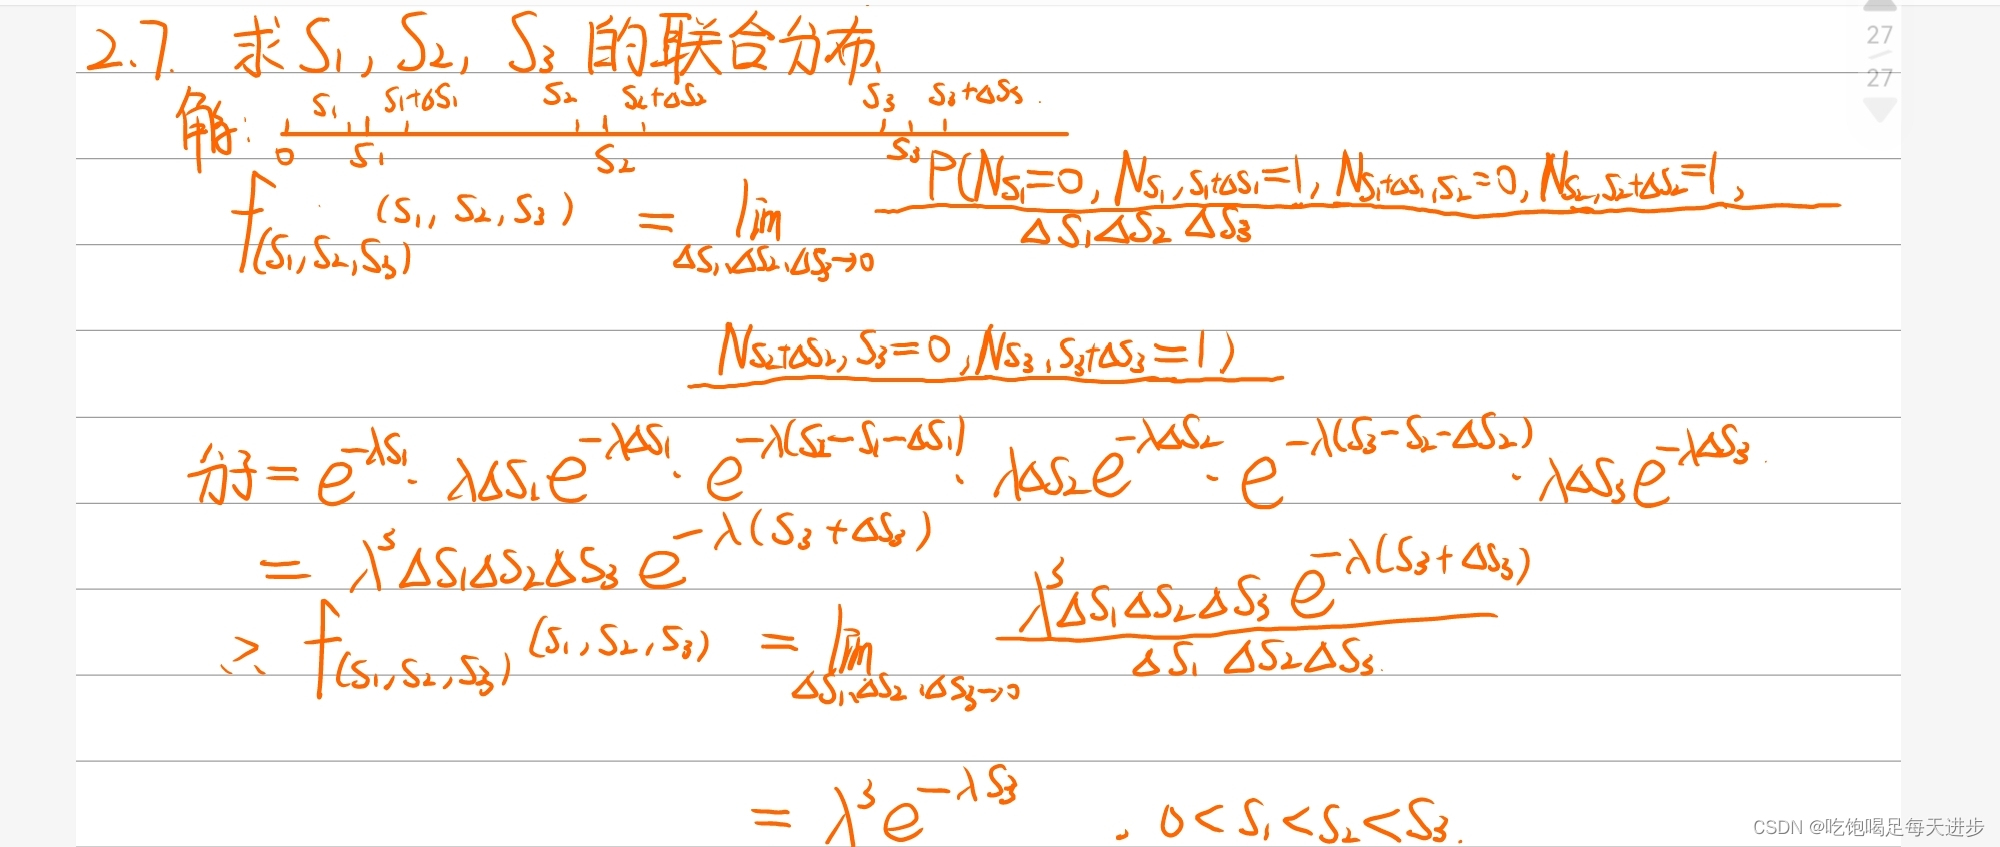 2.7. 求 S₁, S₂, S₃ 的联合分布.
27
27
解: S₁ S₁+ΔS₁ S₂ S₂+ΔS₂ S₃ S₃+ΔS₃
0 S₁ S₂ S₃
f(S₁,S₂,S₃) (S₁, S₂, S₃) = lim ΔS₁,ΔS₂,ΔS₃→0 P(N_S₁=0, N_S₁,S₁+ΔS₁=1, N_S₁+ΔS₁,S₂=0, N_S₂,S₂+ΔS₂=1,
ΔS₁ΔS₂ΔS₃
N_S₂+ΔS₂,S₃=0, N_S₃,S₃+ΔS₃=1)
分子 = e^(-λS₁) · λΔS₁e^(-λΔS₁) · e^(-λ(S₂-S₁-ΔS₁)) · λΔS₂e^(-λΔS₂) · e^(-λ(S₃-S₂-ΔS₂)) · λΔS₃e^(-λΔS₃)
= λ³ΔS₁ΔS₂ΔS₃ e^(-λ(S₃+ΔS₃))
∴ f(S₁,S₂,S₃) (S₁, S₂, S₃) = lim ΔS₁,ΔS₂,ΔS₃→0 λ³ΔS₁ΔS₂ΔS₃ e^(-λ(S₃+ΔS₃))
ΔS₁ΔS₂ΔS₃
= λ³e^(-λS₃) . 0<S₁<S₂<S₃.
CSDN @吃饱喝足每天进步